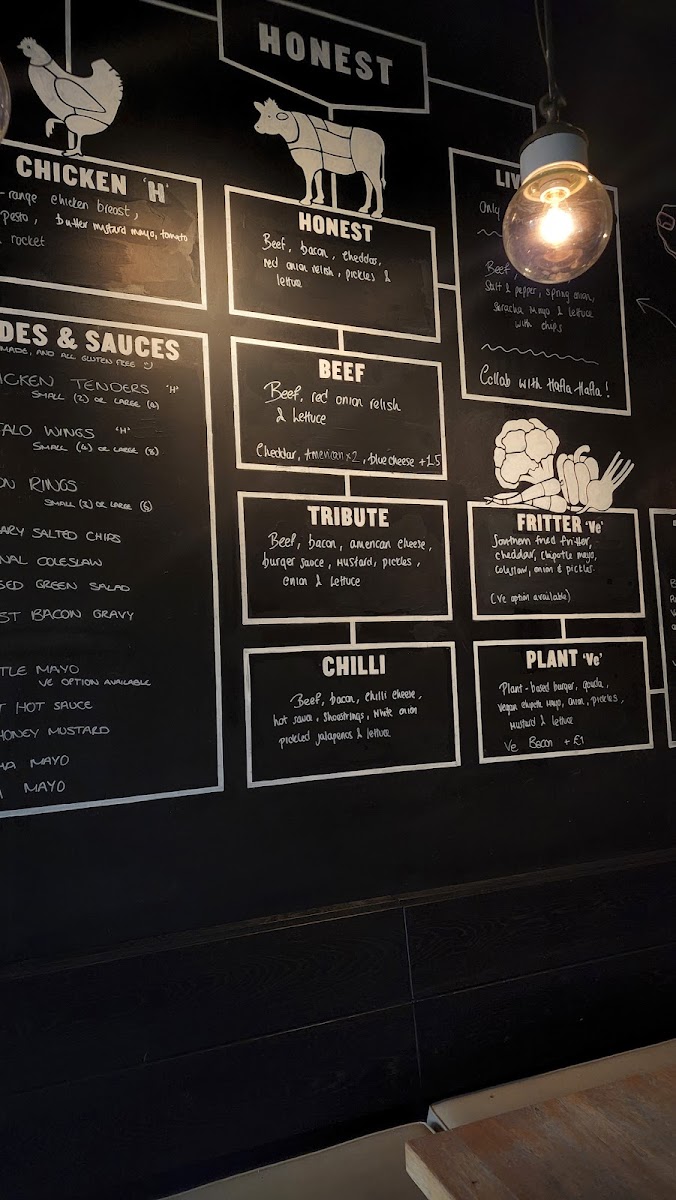 HONEST
CHICKEN 'H'
-range chicken breast,
pesto, butter mustard mayo, tomato
rocket
DES & SAUCES
MADE, AND ALL GLUTEN FREE :)
ICKEN TENDERS 'H'
SMALL (2) OR LARGE (4)
ALO WINGS 'H'
SMALL (4) OR LARGE (8)
ON RINGS
SMALL (3) OR LARGE (6)
ARY SALTED CHIPS
NAL COLESLAW
SED GREEN SALAD
ST BACON GRAVY
TLE MAYO
VE OPTION AVAILABLE
T HOT SAUCE
HONEY MUSTARD
HA MAYO
MAYO
HONEST
Beef, bacon, cheddar,
red onion relish, pickles &
lettuce
BEEF
Beef, red onion relish
& lettuce
Cheddar, American x2, blue cheese +1.5
TRIBUTE
Beef, bacon, american cheese,
burger sauce, mustard, pickles,
onion & lettuce
CHILLI
Beef, bacon, chilli cheese,
hot sauce, shoestrings, white onion
pickled jalapenos & lettuce
LIV
Only
Beef,
Salt & pepper, spring onion,
Sriracha mayo & lettuce
with chips
Collab with Hafla Hafla!
FRITTER 've'
Southern fried fritter,
cheddar, chipotle mayo,
coleslaw, onion & pickles.
(ve option available)
PLANT 'Ve'
Plant-based burger, gouda,
vegan chipotle mayo, onion, pickles,
mustard & lettuce
Ve Bacon +£1